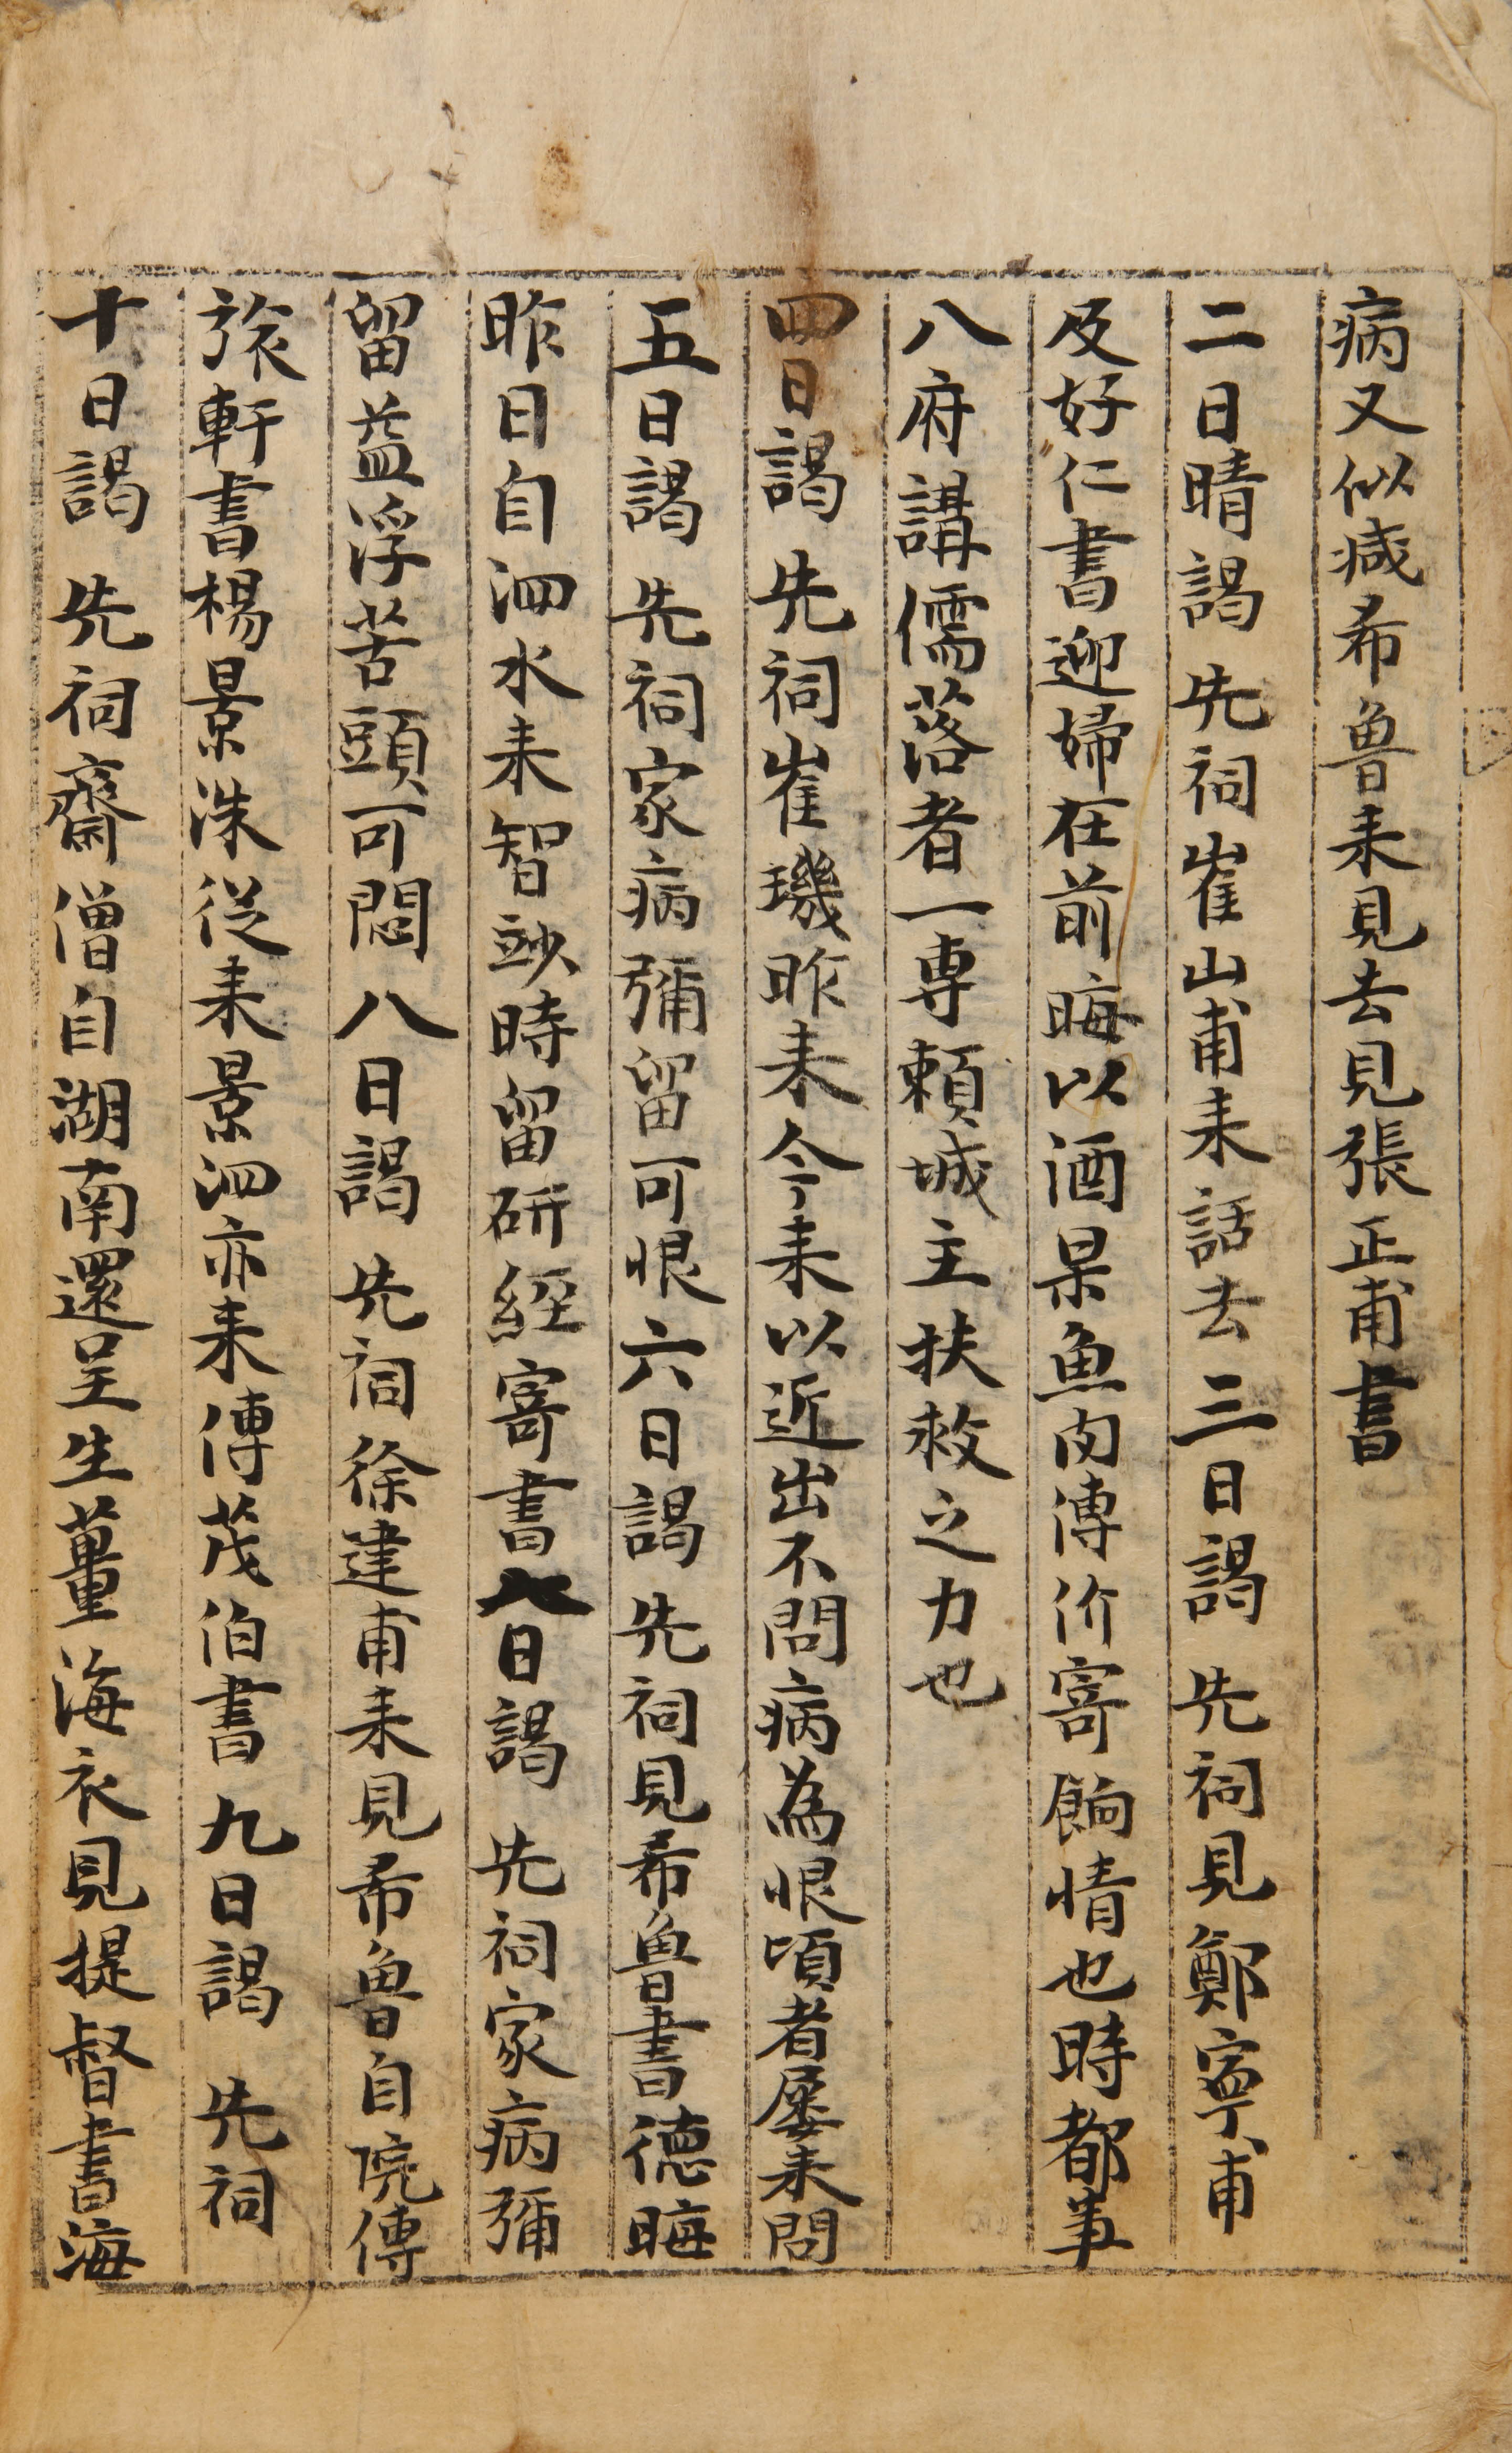 病又似减希魯来見去見張正甫書
二日晴謁 先祠崔山甫来話去 三日謁 先祠見鄭寧甫
及好仁書迎婦在前晦以酒果魚肉溥价寄餉情也時都事
八府講儒落者一專賴城主扶救之力也
四日謁 先祠崔璣昨来今来以近出不問病為恨頃者屡来問
五日謁 先祠家病彌留可恨 六日謁 先祠見希魯書德晦
昨日自泗水来智玅時留研經寄書 七日謁 先祠家病彌
留益浮苦頭可悶 八日謁 先祠徐建甫来見希魯自院傳
旅軒書楊景洙従来景泗亦来傳茂伯書 九日謁 先祠
十日謁 先祠齋僧自湖南還呈生薑海衣見提督書海